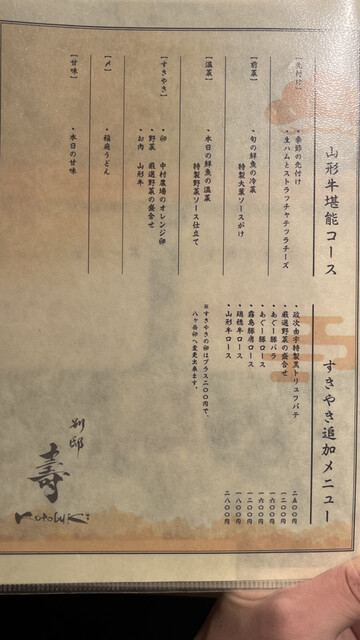 山形牛堪能コース
【先付け】
・季節の先付け
・生ハムとストラッチャテッラチーズ
【前菜】
・旬の鮮魚の冷菜
特製大葉ソースがけ
【温菜】
・本日の鮮魚の温菜
特製野菜ソース仕立て
【すきやき】
・卵 中村農場のオレンジ卵
・野菜 厳選野菜の盛合せ
・お肉 山形牛
【〆】
・稲庭うどん
【甘味】
・本日の甘味
すきやき追加メニュー
・政次由宇特製黒トリュフパテ 二五〇〇円
・厳選野菜の盛合せ 一二〇〇円
・あぐー豚バラ 一六〇〇円
・あぐー豚ロース 一六〇〇円
・霧島豚肩ロース 一二〇〇円
・瑞穂牛ロース 二二〇〇円
・山形牛ロース 二八〇〇円
※すきやきの卵はプラス二〇〇円で、
八ケ岳卵へ変更出来ます。
別邸
壽
KOTOBUKI